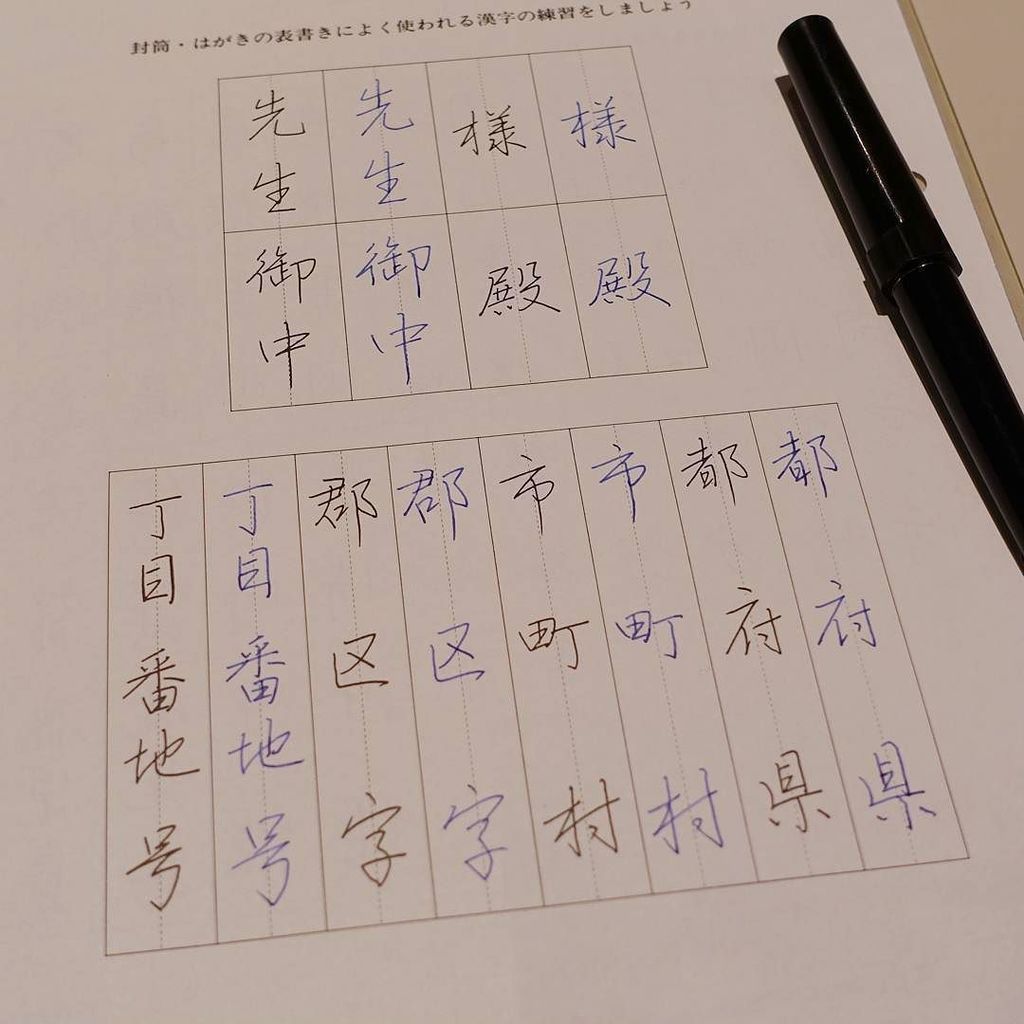 封筒・はがきの表書きによく使われる漢字の練習をしましょう
様
様
先生
先生
殿
殿
御中
御中
都府県
都府県
市町村
市町村
郡区字
郡区字
丁目番地号
丁目番地号